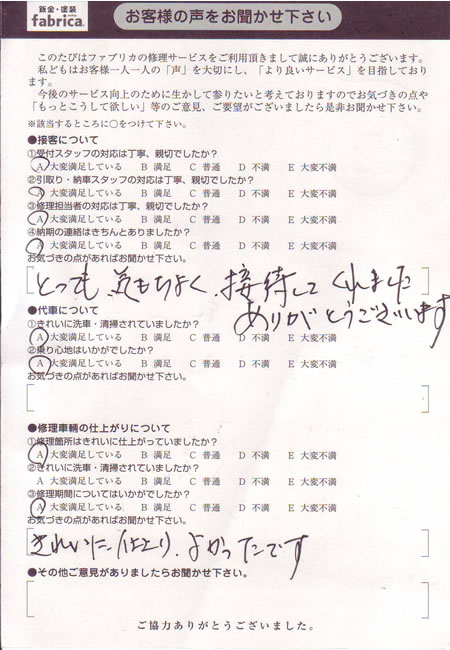 鈑金・塗装
fabrica.
お客様の声をお聞かせ下さい
このたびはファブリカの修理サービスをご利用頂きまして誠にありがとうございます。
私どもはお客様一人一人の「声」を大切にし、「より良いサービス」を目指しており
ます。
今後のサービス向上のために生かして参りたいと考えておりますのでお気づきの点や
「もっとこうして欲しい」等のご意見、ご要望がございましたら是非お聞かせ下さい。
※該当するところに○をつけて下さい。
●接客について
①受付スタッフの対応は丁寧、親切でしたか？
A 大変満足している B 満足 C 普通 D 不満 E 大変不満
②引取り・納車スタッフの対応は丁寧、親切でしたか？
A 大変満足している B 満足 C 普通 D 不満 E 大変不満
③修理担当者の対応は丁寧、親切でしたか？
A 大変満足している B 満足 C 普通 D 不満 E 大変不満
④納期の連絡はきちんとありましたか？
A 大変満足している B 満足 C 普通 D 不満 E 大変不満
お気づきの点があればお聞かせ下さい。
とっても、気もちよく、接待してくれました
ありがとうございます
●代車について
①きれいに洗車・清掃されていましたか？
A 大変満足している B 満足 C 普通 D 不満 E 大変不満
②乗り心地はいかがでしたか？
A 大変満足している B 満足 C 普通 D 不満 E 大変不満
お気づきの点があればお聞かせ下さい。
●修理車輌の仕上がりについて
①修理箇所はきれいに仕上がっていましたか？
A 大変満足している B 満足 C 普通 D 不満 E 大変不満
②きれいに洗車・清掃されていましたか？
A 大変満足している B 満足 C 普通 D 不満 E 大変不満
③修理期間についてはいかがでしたか？
A 大変満足している B 満足 C 普通 D 不満 E 大変不満
お気づきの点があればお聞かせ下さい。
きれいに仕上り、よかったです
●その他ご意見がありましたらお聞かせ下さい。
ご協力ありがとうございました。